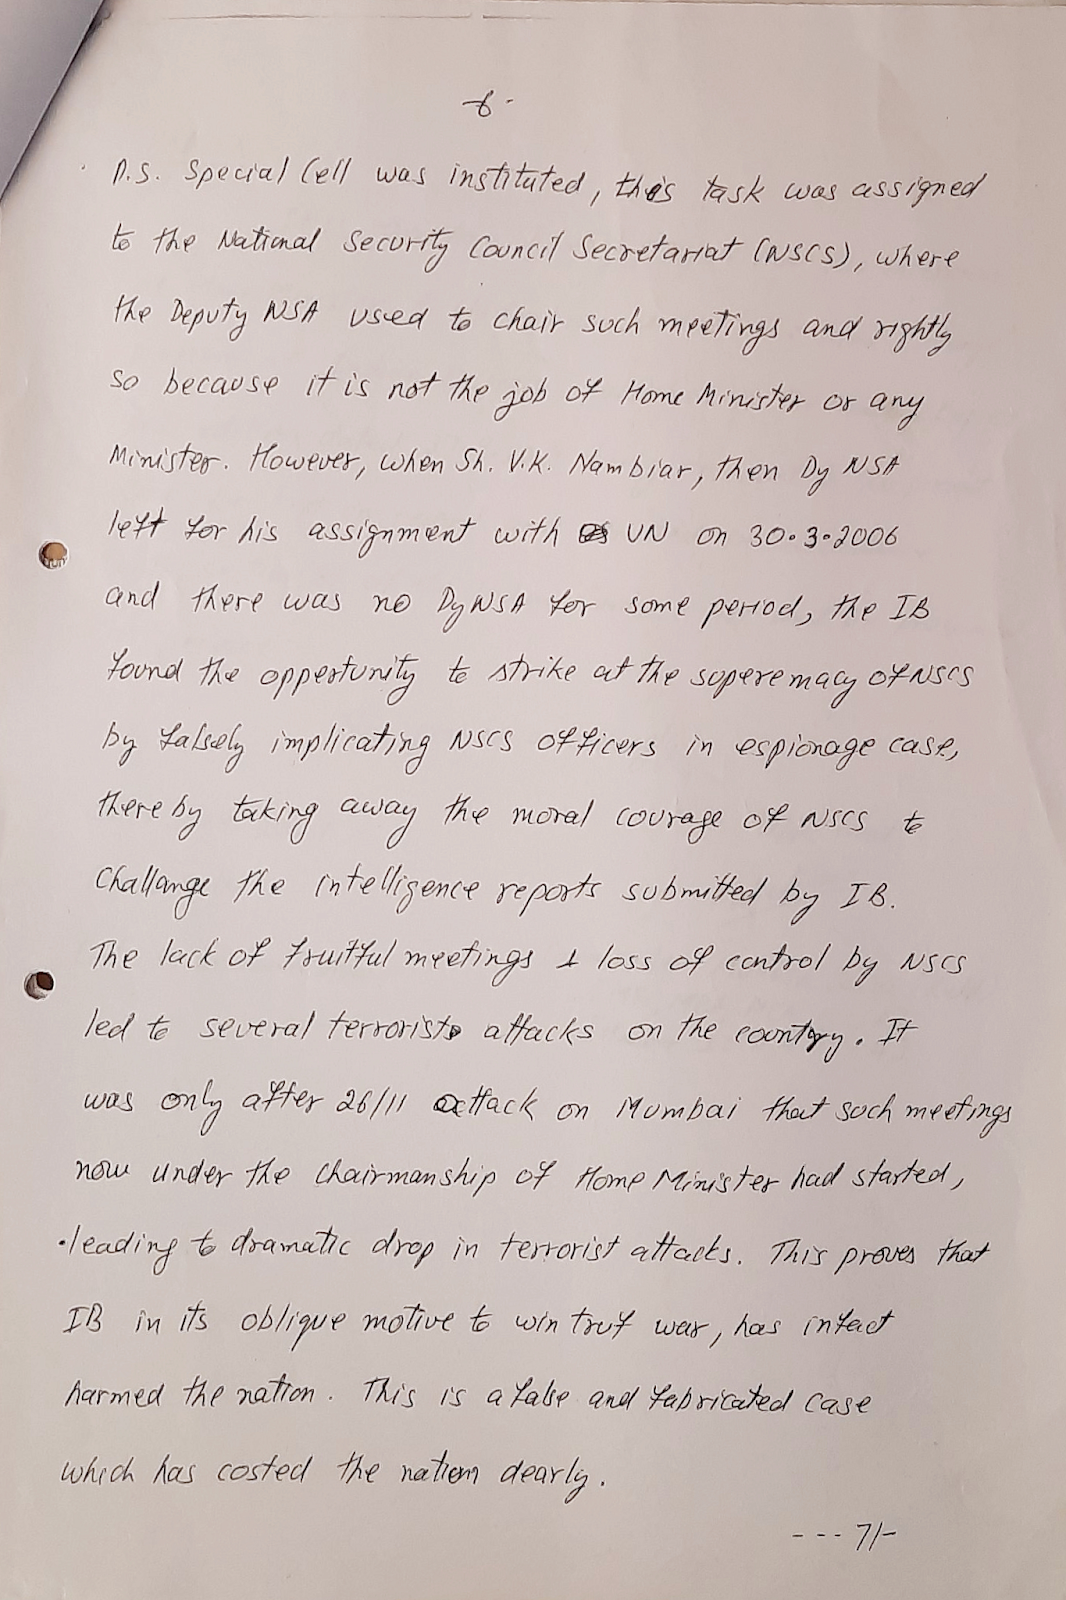 -6-
P.S. Special Cell was instituted, this task was assigned
to the National Security Council Secretariat (NSCS), where
the Deputy NSA used to chair such meetings and rightly
so because it is not the job of Home Minister or any
Minister. However, when Sh. V.K. Nambiar, then Dy NSA
left for his assignment with UN on 30.3.2006
and there was no DyNSA for some period, the IB
found the oppertunity to strike at the superemacy of NSCS
by falsely implicating NSCS officers in espionage case,
thereby taking away the moral courage of NSCS to
challange the intelligence reports submitted by IB.
The lack of fruitful meetings & loss of control by NSCS
led to several terrorist attacks on the country. It
was only after 26/11 attack on Mumbai that such meetings
now under the chairmanship of Home Minister had started,
leading to dramatic drop in terrorist attacks. This proves that
IB in its oblique motive to win truf war, has infact
harmed the nation. This is a false and fabricated case
which has costed the nation dearly.
--- 7/-